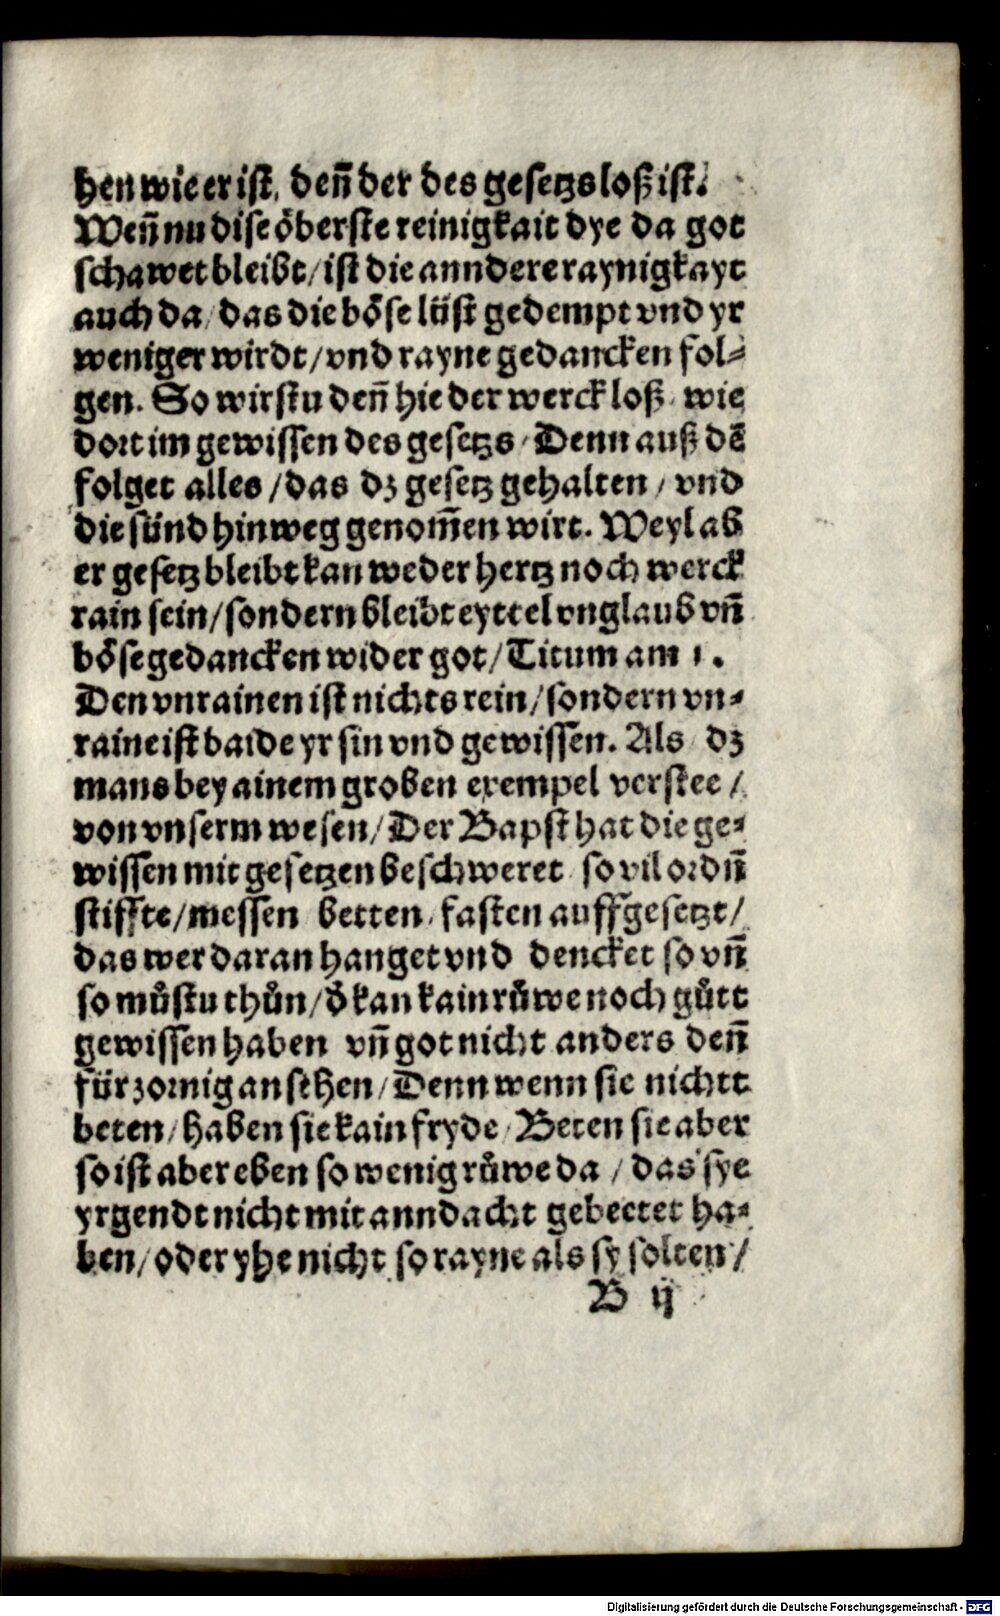 hen wie er ist, deñ der des gesetzs loß ist.
Weñ nu dise öberste reinigkait dye da got
schawet bleibt/ ist die anndere raynigkayt
auch da/ das die böse lüst gedempt vnd yr
weniger wirdt/ vnd rayne gedancken fol⸗
gen. So wirstu deñ hie der werck loß/ wie
dort im gewissen des gesetzs/ Denn auß dē
folget alles/ das dz gesetz gehalten/ vnd
die sünd hinweg genom̄en wirt. Weyl ab
er gesetz bleibt kan weder hertz noch werck
rain sein/ sondern bleibt eyttel vnglaub vñ
böse gedancken wider got/ Titum am 1.
Den vnrainen ist nichts rein/ sondern vn⸗
raine ist baide yr sin vnd gewissen. Als dz
mans bey ainem groben exempel verstee/
von vnserm wesen/ Der Bapst hat die ge⸗
wissen mit gesetzen beschweret so vil ordñ
stiffte/ messen betten/ fasten auffgesetzt/
das wer daran hanget vnd dencket so vñ
so můstu thůn/ d̄ kan kain růwe noch gůtt
gewissen haben vñ got nicht anders deñ
für zornig ansehen/ Denn wenn sie nichtt
beten/ haben sie kain fryde/ Beten sie aber
so ist aber eben so wenig růwe da/ das sye
yrgendt nicht mit anndacht gebeetet ha⸗
ben/ oder yhe nicht so rayne als sy solten/
B ij
Digitalisierung gefördert durch die Deutsche Forschungsgemeinschaft - DFG